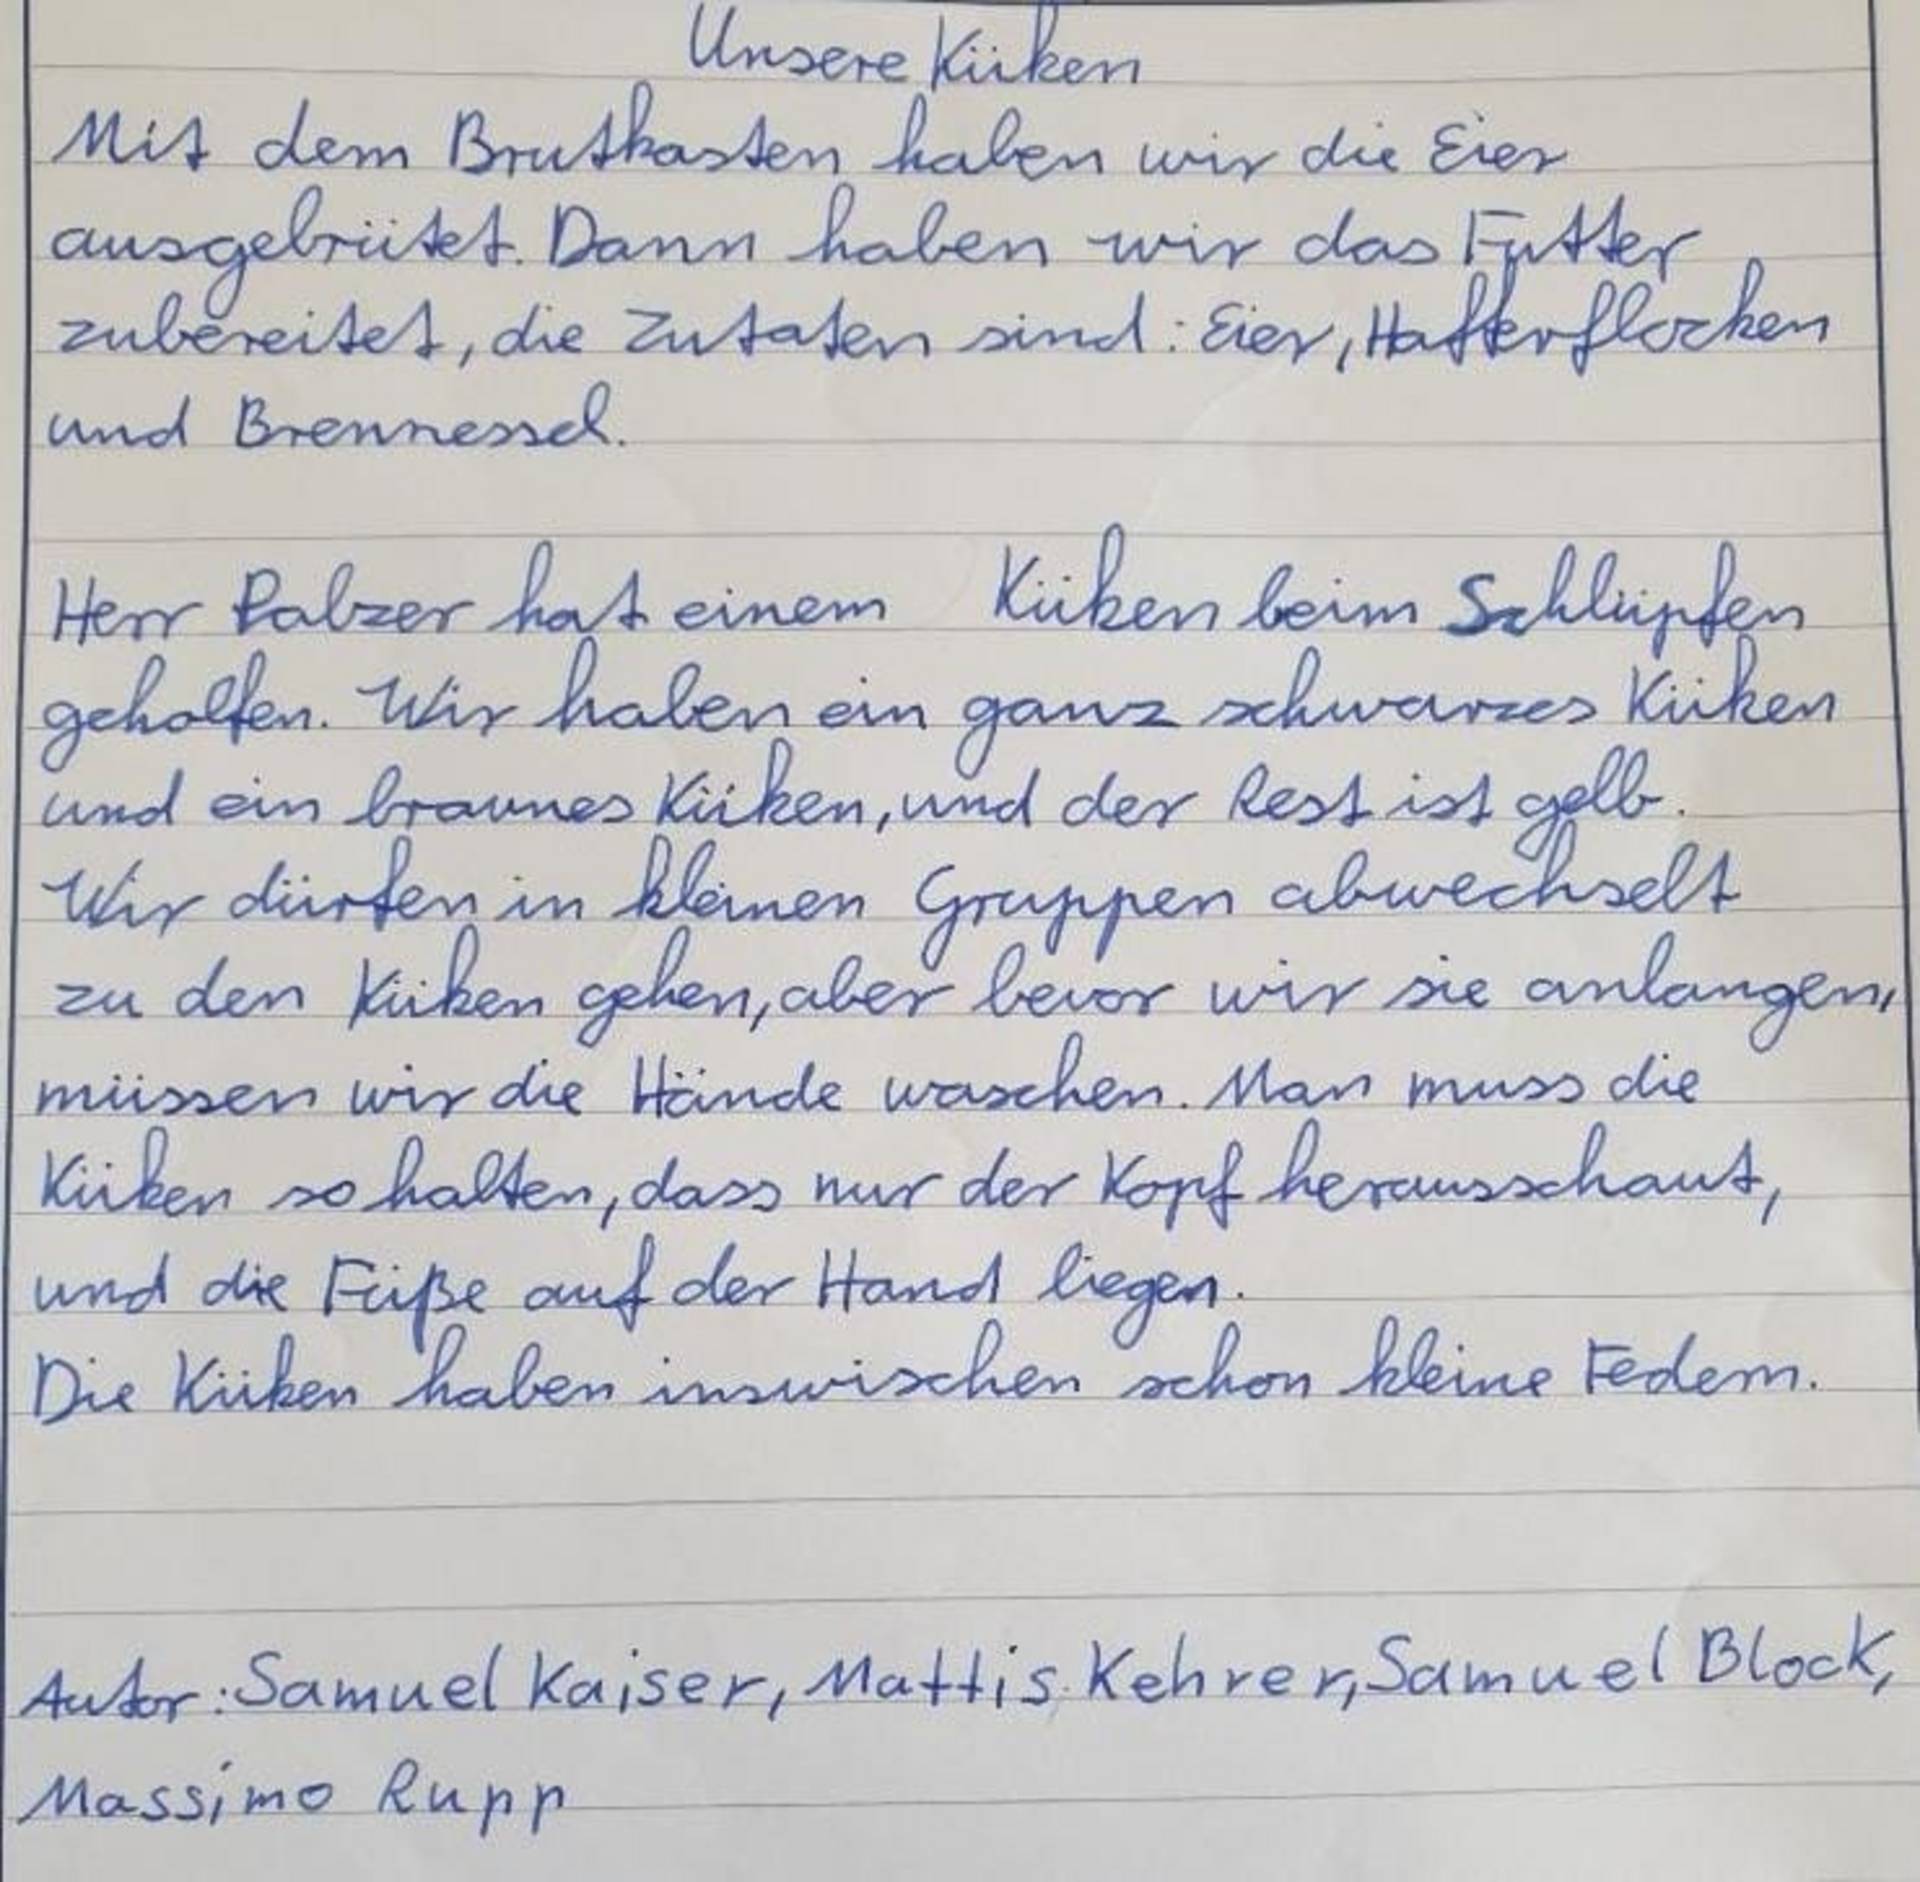 Unsere Küken
Mit dem Brutkasten haben wir die Eier
ausgebrütet. Dann haben wir das Futter
zubereitet, die Zutaten sind: Eier, Hafterflocken
und Brennessel.
Herr Palzer hat einem Küken beim Schlüpfen
geholfen. Wir haben ein ganz schwarzes Küken
und ein braunes Küken, und der Rest ist gelb.
Wir dürfen in kleinen Gruppen abwechselt
zu den Küken gehen, aber bevor wir sie anlangen,
müssen wir die Hände waschen. Man muss die
Küken so halten, dass nur der Kopf herausschaut,
und die Füße auf der Hand liegen.
Die Küken haben inswischen schon kleine Federn.
Autor: Samuel Kaiser, Mattis Kehrer, Samuel Block,
Massimo Rupp